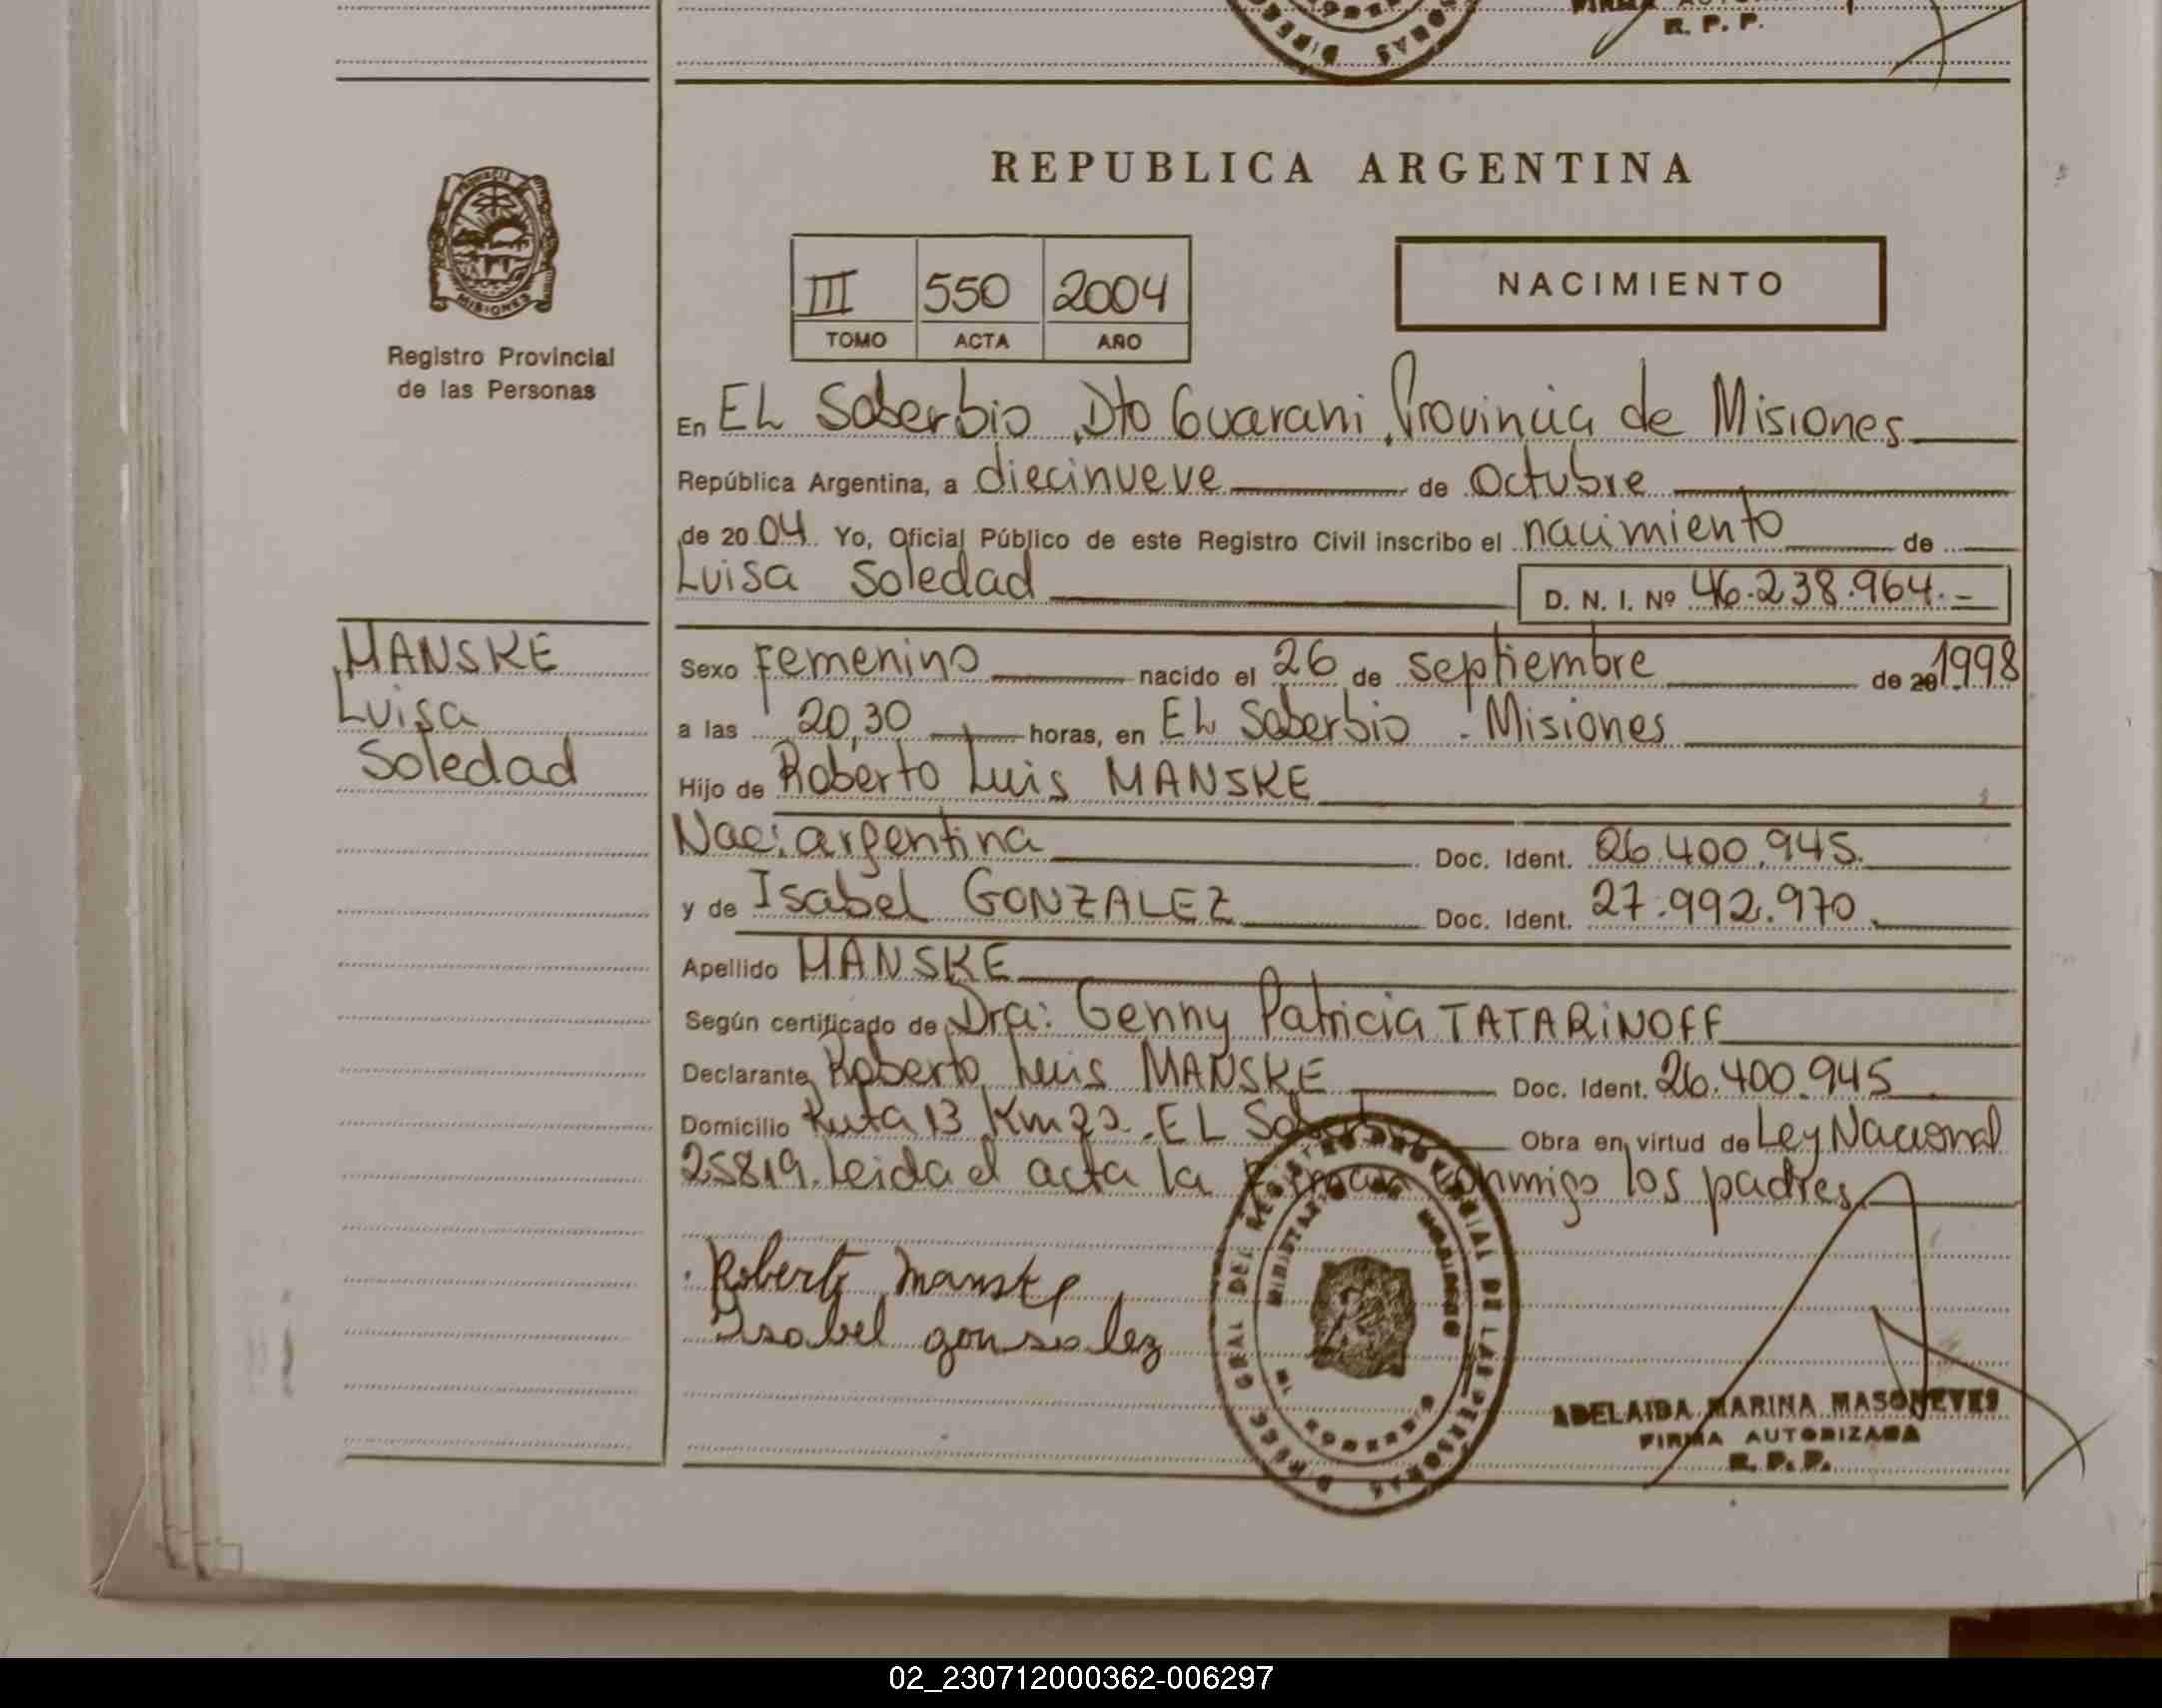 R. P. P.
REPUBLICA ARGENTINA
PROVINCIA
MISIONES
Registro Provincial
de las Personas
III 550 2004
TOMO ACTA AÑO
NACIMIENTO
En EL Soberbio, Dto Guarani, Provincia de Misiones
República Argentina, a diecinueve de Octubre
de 2004. Yo, Oficial Público de este Registro Civil inscribo el nacimiento de
Luisa Soledad D. N. I. Nº 46.238.964.-
MANSKE
Luisa
Soledad
Sexo Femenino nacido el 26 de septiembre de 20 1998
a las 20,30 horas, en EL Soberbio - Misiones
Hijo de Roberto Luis MANSKE
Nac: argentina Doc. Ident. 26.400.945.
y de Isabel GONZALEZ Doc. Ident. 27.992.970.
Apellido MANSKE
Según certificado de Dra: Genny Patricia TATARiNOFF
Declarante Roberto Luis MANSKE Doc. Ident. 26.400.945
Domicilio Ruta 13 Km 22. EL Soberbio Obra en virtud de Ley Nacional
25819. Leida el acta la firman conmigo los padres
Roberto Manske
Isabel gonsalez
DIRECC GRAL DEL REGISTRO PROVINCIAL DE LAS PERSONAS
MINISTERIO DE GOBIERNO
MISIONES
ADELAIDA MARINA
FIRMA AUTORIZADA
R. P. P.
02_230712000362-006297